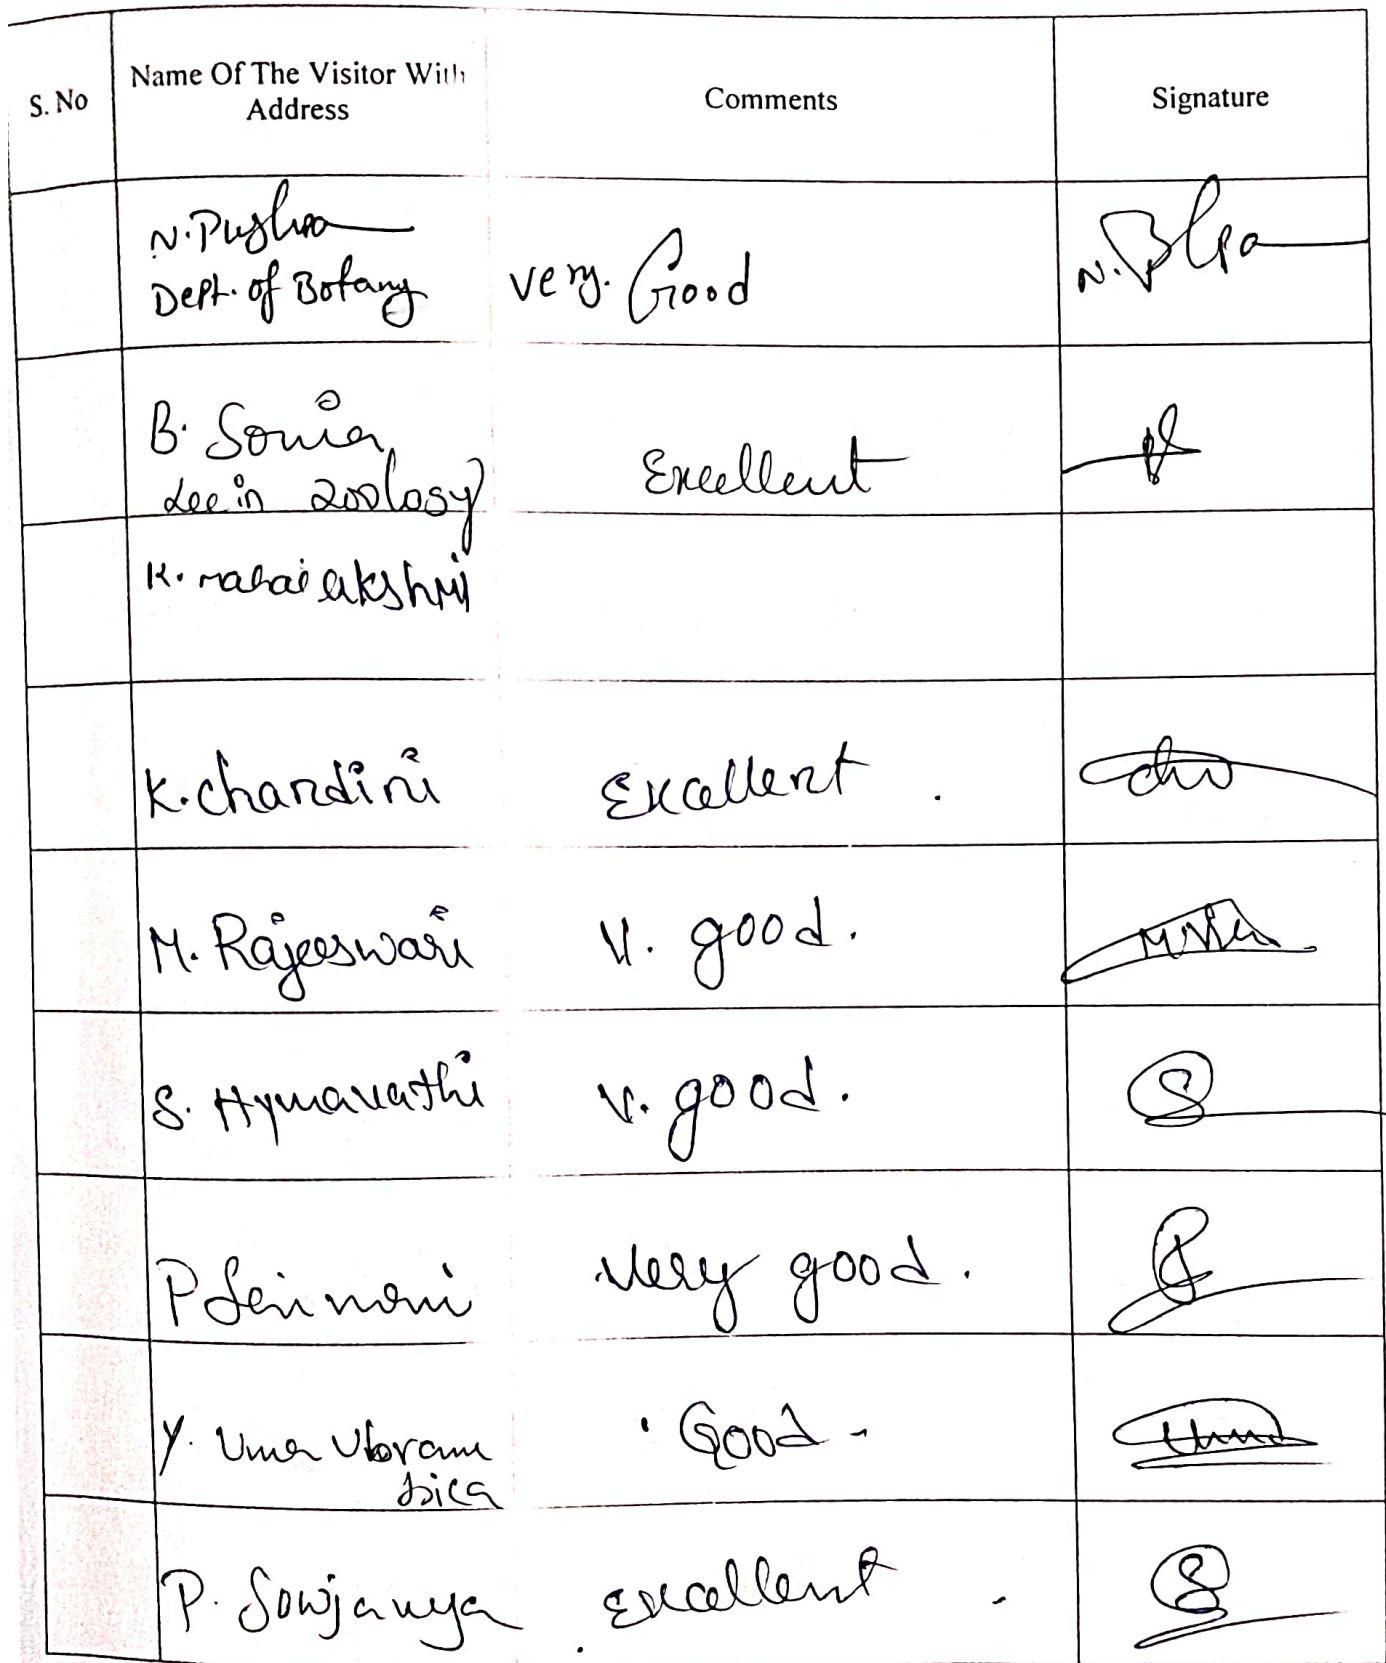 S. No
Name Of The Visitor With
Address
Comments
Signature
N. Pushpa
Dept. of Botany
very. Good
B. Sonia
Lec in zoology
Excellent
K. mahalakshmi
K. chandini
Excellent.
M. Rajeeswari
V. good.
S. Hymavathi
V. good.
P
very good.
Y. Uma
Good
P. Sowjanya
excellent